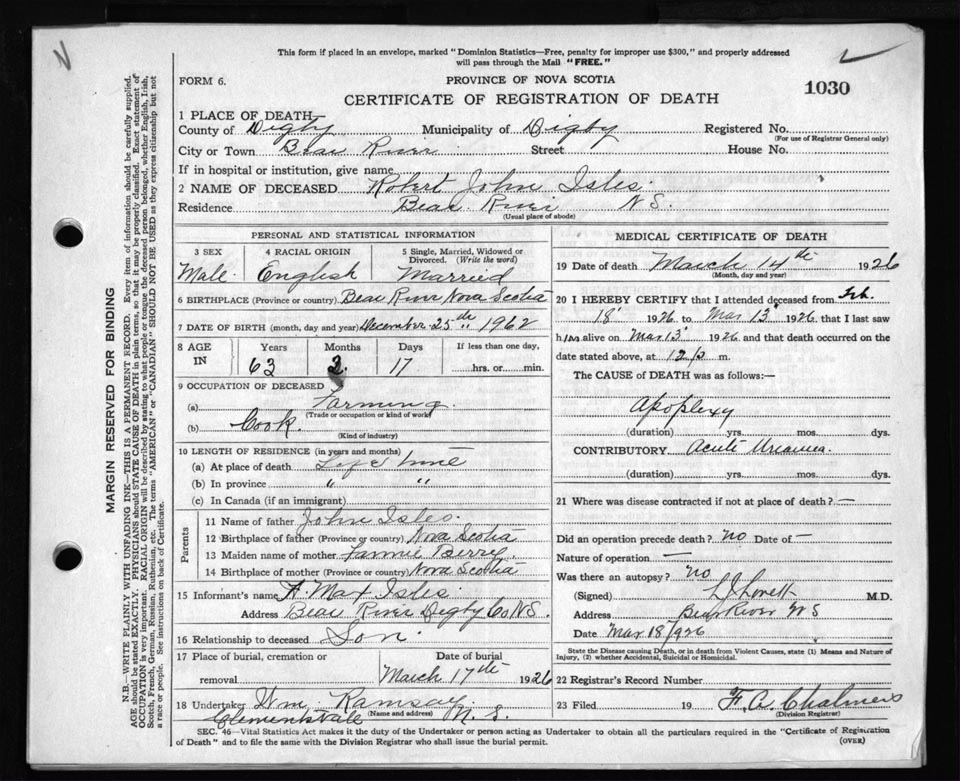 This form if placed in an envelope, marked "Dominion Statistics—Free, penalty for improper use $300," and properly addressed
will pass through the Mail "FREE."
FORM 6.
PROVINCE OF NOVA SCOTIA
1030
CERTIFICATE OF REGISTRATION OF DEATH
1 PLACE OF DEATH
County of Digby Municipality of Digby Registered No.
(For use of Registrar General only)
City or Town Bear River Street House No.
If in hospital or institution, give name
2 NAME OF DECEASED Robert John Isles.
Residence Bear River N S.
(Usual place of abode)
PERSONAL AND STATISTICAL INFORMATION
3 SEX 4 RACIAL ORIGIN 5 Single, Married, Widowed or
Divorced. (Write the word)
Male. English Married
6 BIRTHPLACE (Province or country) Bear River Nova Scotia
7 DATE OF BIRTH (month, day and year) December 25th 1962
8 AGE IN Years Months Days If less than one day,
63 2 17 hrs. or min.
9 OCCUPATION OF DECEASED
(a) Farming
(Trade or occupation or kind of work)
(b) Cook.
(Kind of industry)
10 LENGTH OF RESIDENCE (in years and months)
(a) At place of death Life time
(b) In province " "
(c) In Canada (if an immigrant)
Parents
11 Name of father John Isles.
12 Birthplace of father (Province or country) Nova Scotia
13 Maiden name of mother Fannie Berry
14 Birthplace of mother (Province or country) Nova Scotia
15 Informant's name A. Max Isles.
Address Bear River Digby Co N.S.
16 Relationship to deceased Son.
17 Place of burial, cremation or Date of burial
removal March 17th 1926
18 Undertaker Wm Ramsay
Clementsvale (Name and address) N. S.
MEDICAL CERTIFICATE OF DEATH
19 Date of death March 14th 1926
(Month, day and year)
20 I HEREBY CERTIFY that I attended deceased from Feb.
18 1926 to Mar 13 1926, that I last saw
him alive on Mar 13 1926 and that death occurred on the
date stated above, at 12 p m.
The CAUSE of DEATH was as follows:—
Apoplexy
(duration) yrs. mos. dys.
CONTRIBUTORY Acute Uraemia.
(duration) yrs. mos. dys.
21 Where was disease contracted if not at place of death? —
Did an operation precede death? no Date of —
Nature of operation —
Was there an autopsy? no
(Signed) Lovett M.D.
Address Bear River N S
Date Mar 18/926
State the Disease causing Death, or in death from Violent Causes, state (1) Means and Nature of
Injury, (2) whether Accidental, Suicidal or Homicidal.
22 Registrar's Record Number
23 Filed 19 F. A. Chalmers
(Division Registrar)
SEC. 46—Vital Statistics Act makes it the duty of the Undertaker or person acting as Undertaker to obtain all the particulars required in the "Certificate of Registration
of Death" and to file the same with the Division Registrar who shall issue the burial permit. (OVER)
MARGIN RESERVED FOR BINDING
N.B.—WRITE PLAINLY WITH UNFADING INK—THIS IS A PERMANENT RECORD. Every item of information should be carefully supplied.
AGE should be stated EXACTLY. PHYSICIANS should STATE CAUSE OF DEATH in plain terms, so that it may be properly classified. Exact statement of
OCCUPATION is very important. RACIAL ORIGIN will be described by stating to what people or tongue the deceased person belonged, whether English, Irish,
Scotch, French, German, Russian, Ruthenian, etc. The terms "AMERICAN" or "CANADIAN" SHOULD NOT BE USED as they express citizenship but not
a race or people. See instructions on back of Certificate.